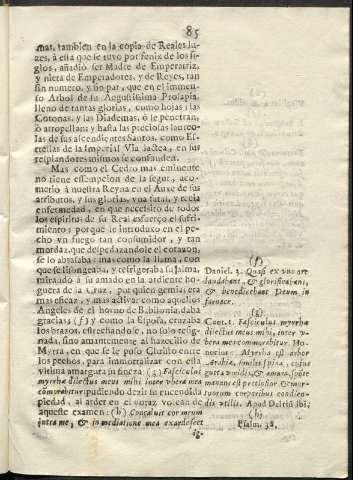 85
mas, tambien en la copia de Reales luzes,
à esta que se tuvo por fenix de los siglos,
añadiò ser Madre de Emperatriz,
y nieta de Emperadores, y de Reyes, tan
sin numero, y sin par, que en el immenso
Arbol de su Augustissima Prosapia,
lleno de tantas glorias, como hojas; las
Coronas, y las Diademas, ò se penetran,
ò atropellan; y hasta las preciosas laureolas
de sus ascendientes Santos, como Estrellas
de la Imperial Via lactea, en sus
resplandores mismos se confunden.
Mas como el Cedro mas eminente
no tiene essempcion de la segur,
à nuestra Reyna en el Auxe de sus
atributos, y sus glorias, vna fatal, y recia
enfermedad, en que necessitò de todos
los espiritus de su Real esfuerço el sufrimiento;
porque le introduxo en el pecho
vn fuego tan consumidor, y tan
mordaz, que despedazandole el coraçon,
se lo abrasaba: mas como la llama, con
que se lisongeaba, y refrigeraba su alma,
mirando à su amado en la ardiente hoguera
de la Cruz, por quien gemia; era
mas eficaz, y mas activa: como aquellos
Angeles de el horno de Babilonia, daba
gracias: (f) y como la Esposa, cruzaba
los brazos, estrechandole, no solo resignada,
sino amantemente al hazecillo de
Myrra, en que se le puso Christo entre
los pechos, para immortalizar con esta
vltima amargura su fineza: (g) Fasciculus
myrrhæ dilectus meus mihi inter vbera mea
commorabitur; pudiendo dezir su encendida
piedad, al arder en el voraz volcan de
aqueste examen: (h) Concaluit cor meum
intra me, & in meditatione mea exardescet
ig-
(f)
Daniel. 3. Quasi ex vno ore
laudabant, & glorificabant,
& benedicebant Deum in
fornace.
(g)
Cant. 1. Fasciculus myrrhæ
dilectus meus mihi, inter vbera
mea commorabitur.
Myrrha est arbor
Arabiæ, similis spinæ, cuius
gutta viridis, & amara, sponte
manans est pretiosior, & mortuorum
corporibus condiendis
vtilis. Apud
(h)
Psalm. 38.